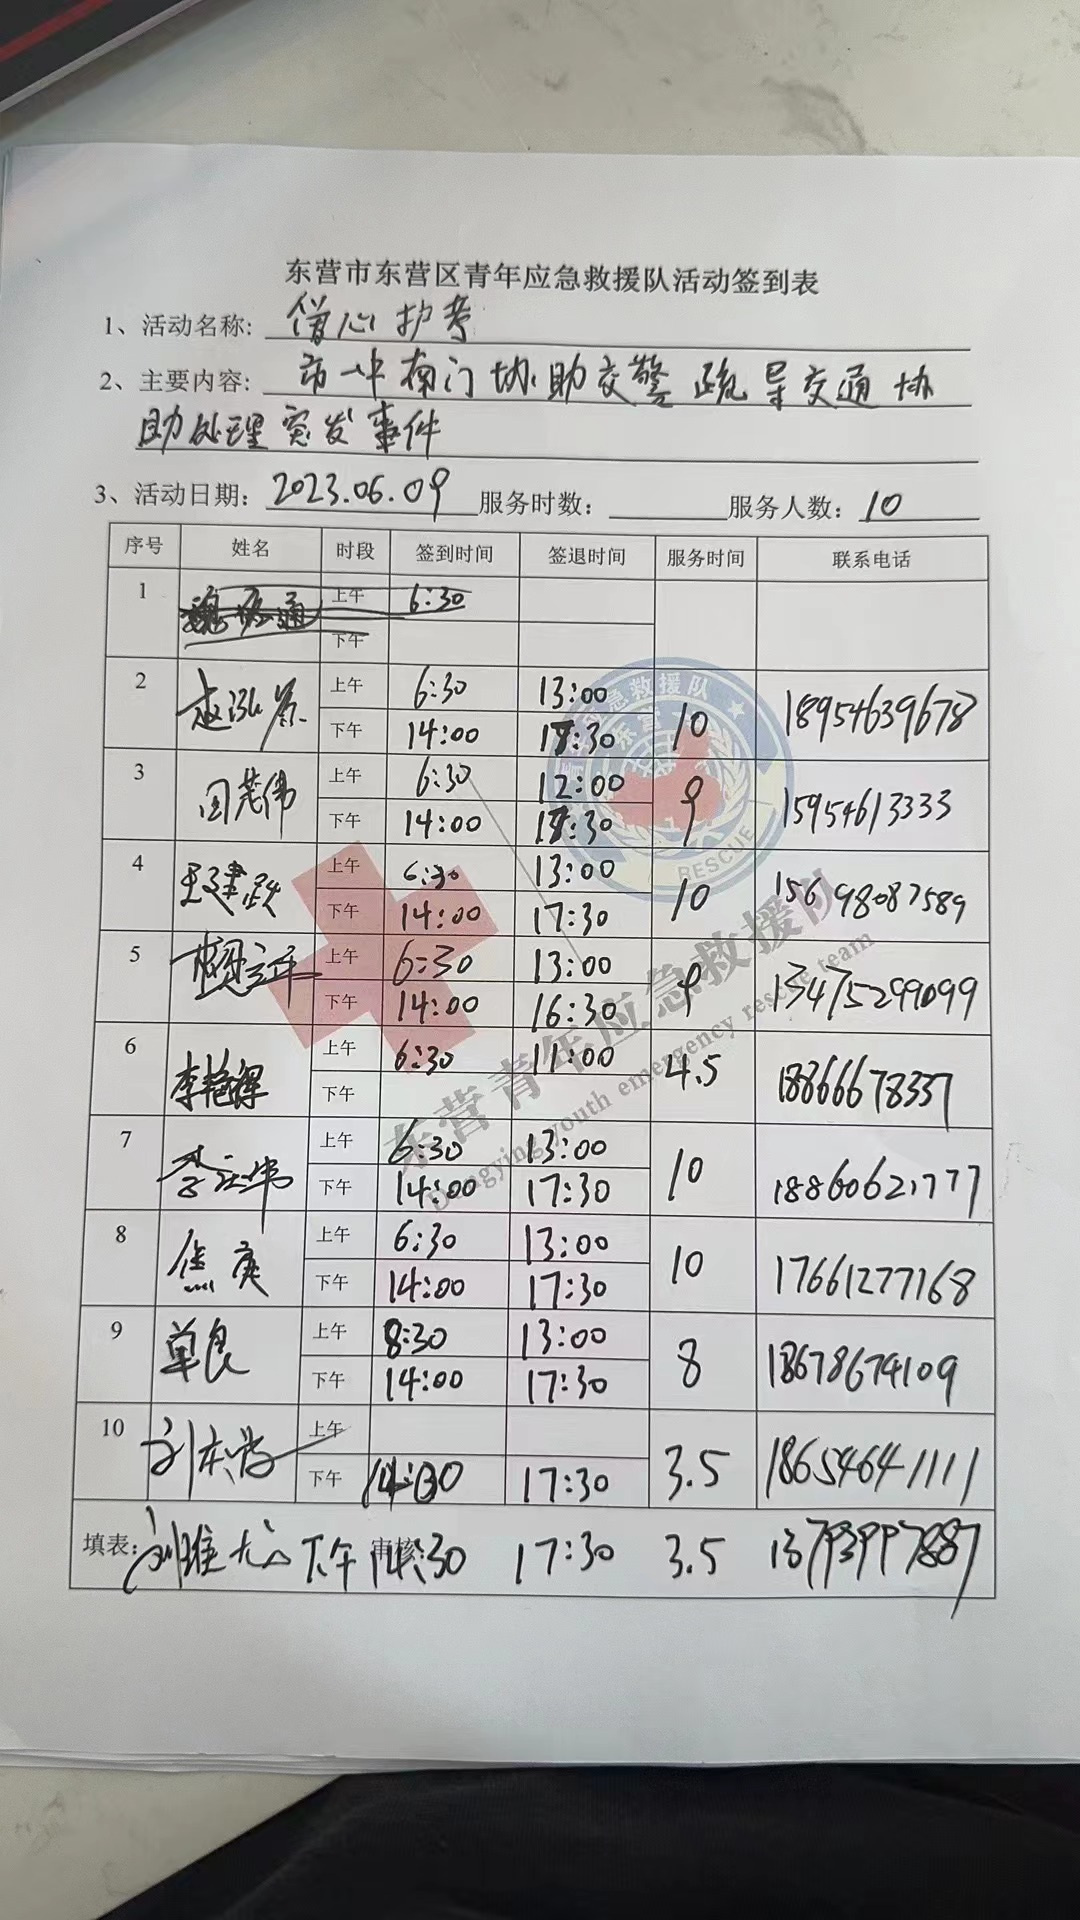 东营市东营区青年应急救援队活动签到表
1、活动名称: 借心护考
2、主要内容: 市一中南门协助交警疏导交通协
助处理突发事件
3、活动日期: 2023.06.09 服务时数: 服务人数: 10
序号 姓名 时段 签到时间 签退时间 服务时间 联系电话
1 上午 6:30
下午
2 上午 6:30 13:00 10 18954639678
下午 14:00 17:30
3 周茂伟 上午 6:30 12:00 9 15954613333
下午 14:00 17:30
4 王建跃 上午 6:30 13:00 10 15698087589
下午 14:00 17:30
5 上午 6:30 13:00 9 13475299099
下午 14:00 16:30
6 李艳辉 上午 6:30 11:00 4.5 18866678337
下午
7 上午 6:30 13:00 10 18860621777
下午 14:00 17:30
8 焦爽 上午 6:30 13:00 10 17661277168
下午 14:00 17:30
9 单良 上午 8:30 13:00 8 18678674109
下午 14:00 17:30
10 上午 3.5 18654641111
下午 17:30
填表: 下午 审核: 17:30 3.5 13793997887
青年应急救援队
东营
RESCUE
东营青年应急救援队
Dongying youth emergency rescue team